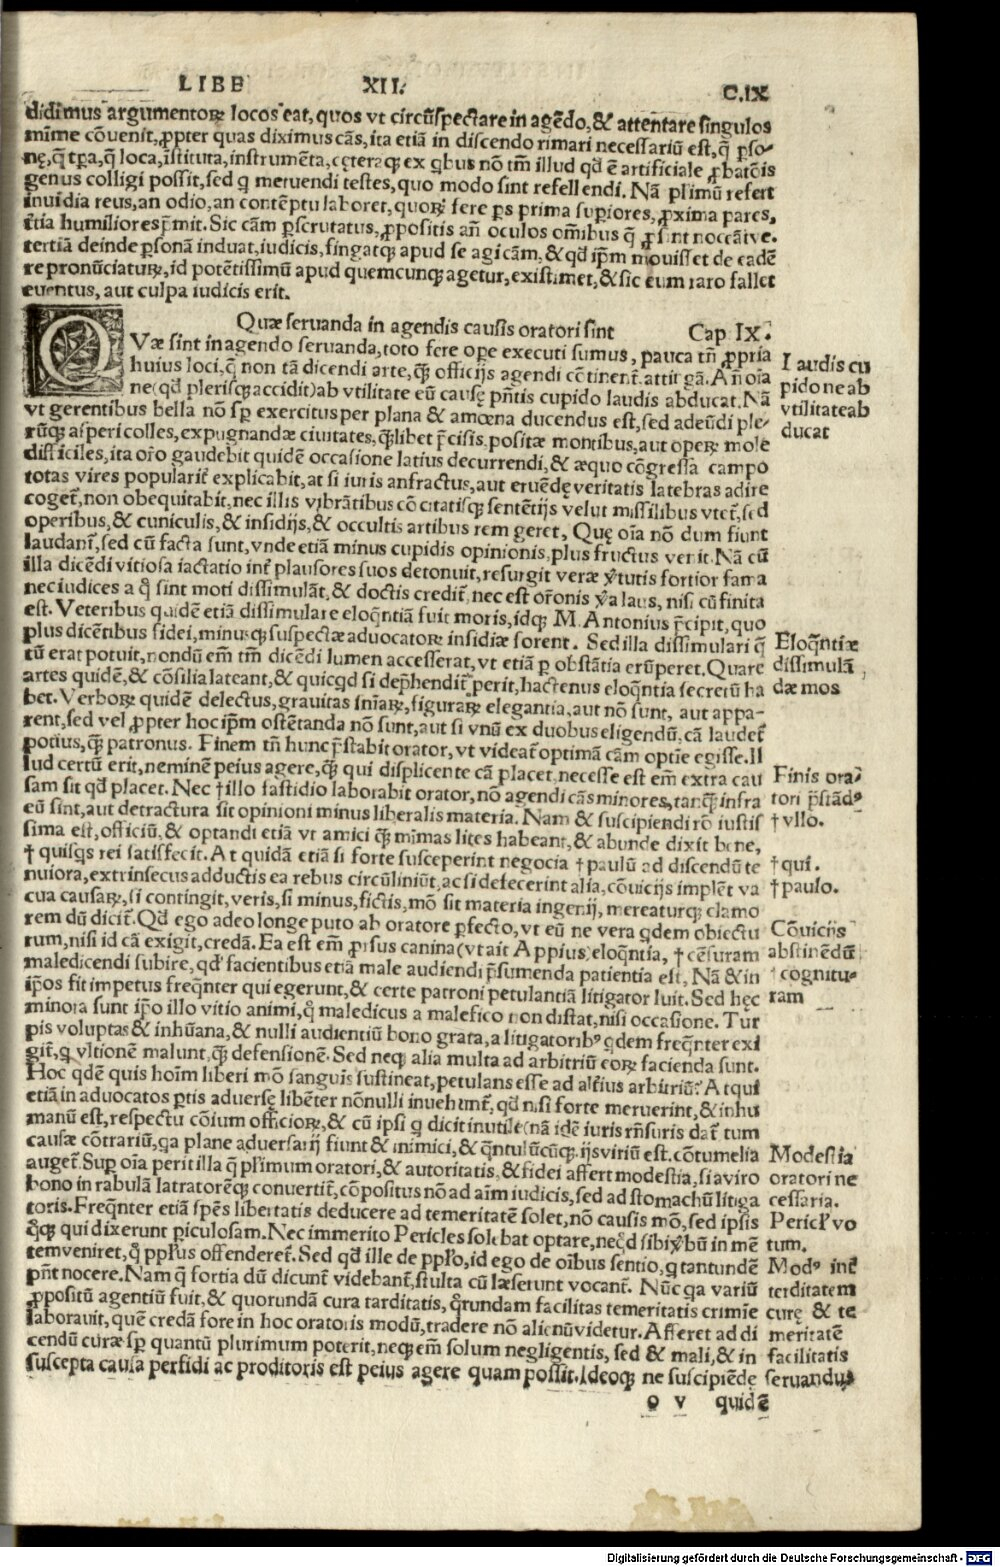 LIBE XII. C.IX
didimus argumentoꝝ locos eat, quos vt circũspectare in agẽdo, & attentare singulos
mĩme cõuenit, ꝓpter quas diximus cãs, ita etiã in discendo rimari necessariũ est, q̃ pſo-
nę, q̃ tpa, q̃ loca, ĩstituta, instrumẽta, cęteraqꝫ ex qbus nõ tm̃ illud qd̃ ẽ artificiale ꝓbatõis
genus colligi possit, sed q metuendi testes, quo modo sint refellendi. Nã pl̃imũ refert
inuidia reus, an odio, an contẽptu laboret, quoꝝ fere ps prima supiores, ꝓxima pares,
t̃tia humiliores p̃mit. Sic cãm pscrutatus, ꝓpositis añ oculos om̃ibus q̃ ꝓsint noceãtve.
tertiã deinde psonã induat, iudicis, fingatqꝫ apud se agi cãm, & qd̃ ip̃m mouisset de eadẽ
re pronũciaturꝰ, id potẽtissimũ apud quemcunqꝫ agetur, existimet, & sic eum raro fallet
euentus, aut culpa iudicis erit.
Quæ seruanda in agendis causis oratori sint Cap IX.
QVæ sint in agendo seruanda, toto fere ope executi sumus, pauca tñ ꝓpria
huius loci, q̃ non tã dicendi arte, q̃ officijs agendi cõtinent̃. attingã. Añ oĩa
ne (qd̃ plerisqꝫ accidit) ab vtilitate eũ causę pñtis cupido laudis abducat. Nã
vt gerentibus bella nõ sp exercitus per plana & amœna ducendus est, sed adeũdi ple-
rũqꝫ asperi colles, expugnandæ ciuitates, q̃libet p̃cisis, positæ montibus, aut opeꝝ mole
difficiles, ita or̃o gaudebit quidẽ occasione latius decurrendi, & æquo cõgressa campo
totas vires popularit̃ explicabit, at si iuris anfractus, aut eruẽdę veritatis latebras adire
coget̃, non obequitabit, nec illis vibrãtibus cõcitatisqꝫ sentẽtijs velut missilibus vtet̃, sed
operibus, & cuniculis, & insidijs, & occultis artibus rem geret, Quę oĩa nõ dum fiunt
laudant̃, sed cũ facta sunt, vnde etiã minus cupidis opinionis, plus fructus venit. Nã cũ
illa dicẽdi vitiosa iactatio int̃ plausores suos detonuit, resurgit veræ v̓tutis fortior fama
nec iudices a q̊ sint moti dissimulãt, & doctis credit̃, nec est or̃onis v̓a laus, nisi cũ finita
est. Veteribus quidẽ etiã dissimulare eloq̃ntiã fuit moris, idqꝫ M. Antonius p̃cipit, quo
plus dicẽtibus fidei, minusqꝫ suspectæ aduocatoꝝ insidiæ forent. Sed illa dissimulari q̃
tũ erat potuit, nondũ em̃ tm̃ dicẽdi lumen accesserat, vt etiã p obstãtia erũperet. Quare
artes quidẽ, & cõsilia lateant, & quicqd si dep̃hendit̃ perit, hactenus eloq̃ntia secretũ ha
bet. Verboꝝ quidẽ delectus, grauitas sñiaꝝ, figuraꝝ elegantia, aut nõ sunt, aut appa-
rent, sed vel ꝓpter hoc ip̃m ostẽtanda nõ sunt, aut si vnũ ex duobus eligendũ, cã laudet̃
potius, q̃ꝫ patronus. Finem tñ hunc p̃stabit orator, vt videat̃ optimã cãm optĩe egisse. Il
lud certũ erit, neminẽ peius agere, q̃ꝫ qui displicente cã placet, necesse est em̃ extra cau
sam sit qd̃ placet. Nec †illo fastidio laborabit orator, nõ agendi cãs minores, tanq̃ꝫ infra
eũ sint, aut detractura sit opinioni minus liberalis materia. Nam & suscipiendi rõ iustis
sima est, officiũ, & optandi etiã vt amici q̃ꝫ mĩmas lites habeant, & abunde dixit bene,
† quisqs rei satisfecit. At quidã etiã si forte susceperint negocia †paulũ ad discendũ te
nuiora, extrinsecus adductis ea rebus circũliniũt, ac si defecerint alia, cõuicijs implẽt va
cua causaꝝ, si contingit, veris, si minus, fictis, mõ sit materia ingenij, mereaturqꝫ clamo
rem dũ dicit̃. Qd̃ ego adeo longe puto ab oratore pfecto, vt eũ ne vera qdem obiectu
rum, nisi id cã exigit, credã. Ea est em̃ ꝓrsus canina (vt ait Appius) eloq̃ntia, † cẽsuram
maledicendi subire, qd̃ facientibus etiã male audiendi p̃sumenda patientia est, Nã & in
ip̃os fit impetus freq̃nter qui egerunt, & certe patroni petulantiã litigator luit. Sed hęc
minora sunt ip̃o illo vitio animi, q̊ maledicus a malefico non distat, nisi occasione. Tur
pis voluptas & inhũana, & nulli audientiũ bono grata, a litigatoribꝰ qdem freq̃nter exi
git̃, q vltionẽ malunt, q̃ꝫ defensionẽ. Sed neqꝫ alia multa ad arbitriũ eoꝝ facienda sunt.
Hoc qdẽ quis hoĩm liberi mõ sanguis sustineat, petulans esse ad alt̃ius arbitriũ? Atqui
etiã in aduocatos ptis aduersę libẽter nõnulli inuehunt̃, qd̃ nisi forte meruerint, & inhu
manũ est, respectu cõium officioꝝ, & cũ ipsi q dicit inutile (nã idẽ iuris rñsuris dat̃ tum
causæ cõtrariũ, qa plane aduersarij fiunt & inimici, & q̃ntulũcũqꝫ ijs viriũ est. cõtumelia
auget̃. Sup oĩa perit illa q̃ pl̃imum oratori, & autoritatis, & fidei affert modestia, si a viro
bono in rabulã latratorẽqꝫ conuertit̃, cõpositus nõ ad aĩm iudicis, sed ad stomachũ litiga
toris. Freq̃nter etiã spẽs libertatis deducere ad temeritatẽ solet, nõ causis mõ, sed ipsis
q̊qꝫ qui dixerunt piculosam. Nec immerito Pericles solebat optare, neq̊d sibi v̓bũ in mẽ
tem veniret, q̊ pplus offenderet̃. Sed qd̃ ille de ppl̃o, id ego de oĩbus sentio, q tantundẽ
pñt nocere. Nam q̃ fortia dũ dicunt̃ videbant̃, stulta cũ læserunt vocant̃. Nũc qa variũ
ꝓpositũ agentiũ fuit, & quorundã cura tarditatis, q̊rundam facilitas temeritatis crimĩe
laborauit, quẽ credã fore in hoc oratoris modũ, tradere nõ alienũ videtur. Afferet ad di
cendũ curæ sp quantũ plurimum poterit, neqꝫ em̃ solum negligentis, sed & mali, & in
suscepta causa perfidi ac proditoris est peius agere quam possit. Ideoqꝫ ne suscipiẽdę
o v quidẽ
Laudis cu
pido ne ab
vtilitate ab
ducat
Eloq̃ntiæ
dissimulã
dæ mos
Finis ora-
tori p̃stãdꝰ
†vllo.
†qui.
†paulo.
Cõuicijs
abstinẽdũ
†cognitu-
ram
Modestia
oratori ne
cessaria.
Pericl̓ vo
tum.
Modꝰ int̃
terditatem
curę & te
meritatẽ
facilitatis
seruandus
Digitalisierung gefördert durch die Deutsche Forschungsgemeinschaft - DFG